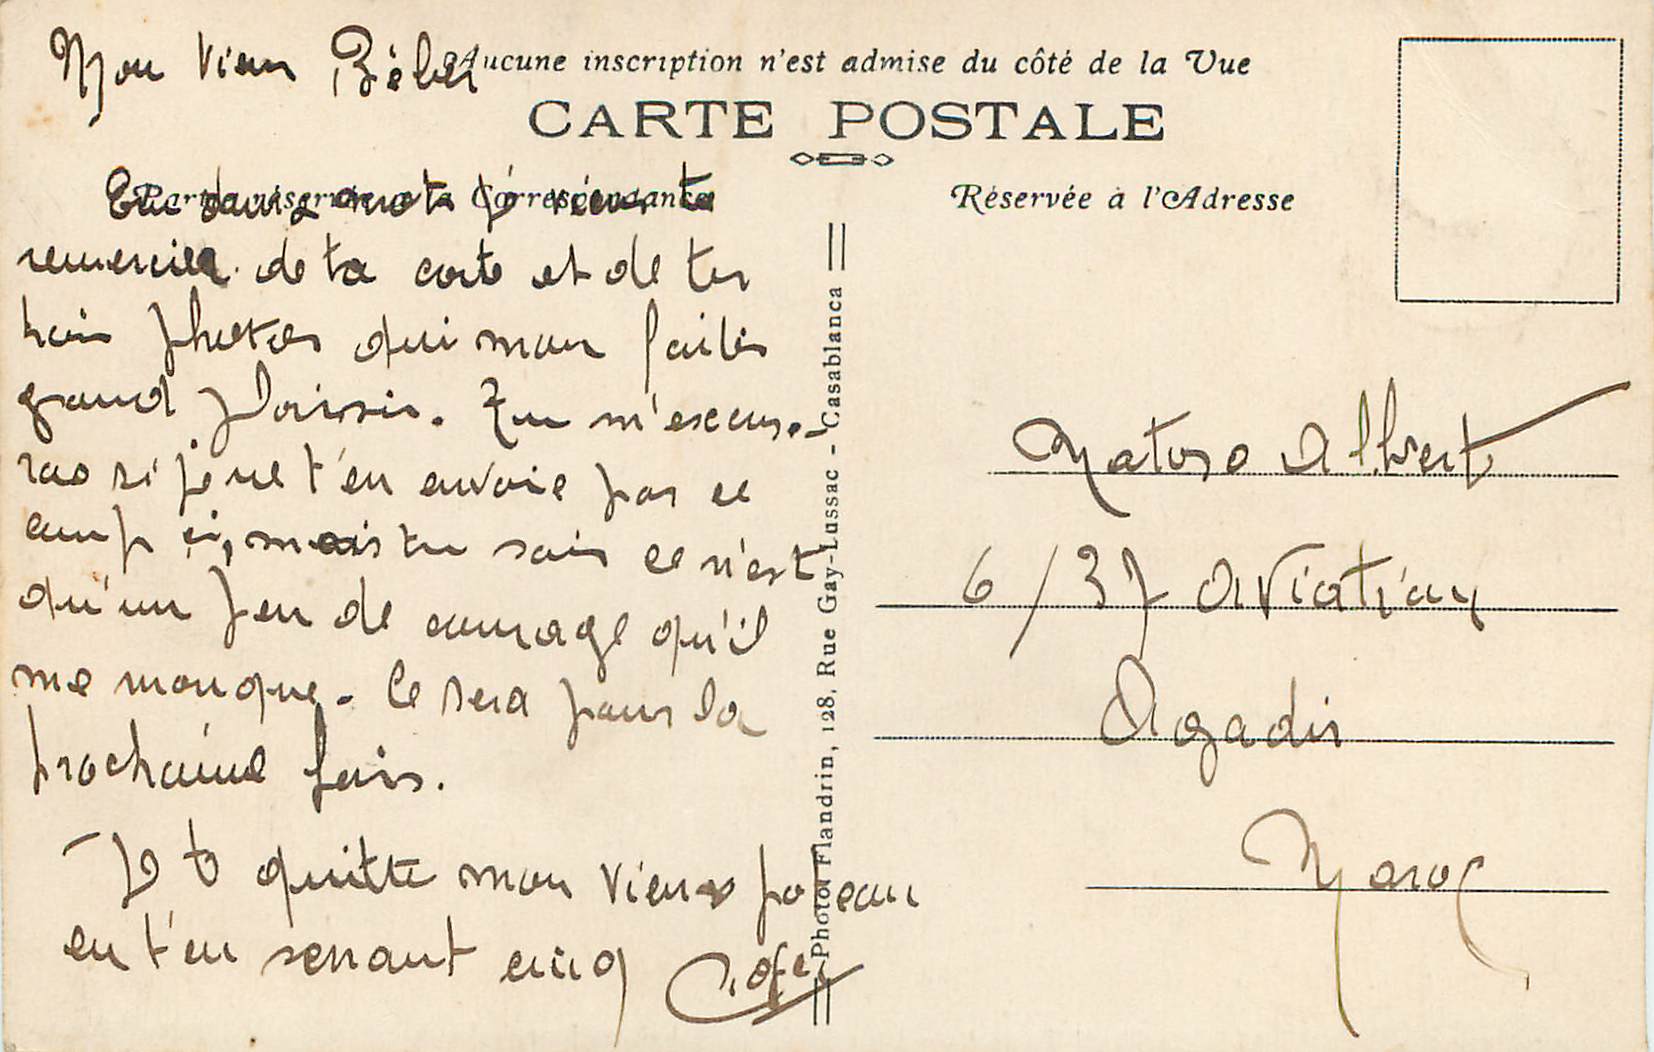 Mon vieux Bébert
Aucune inscription n'est admise du côté de la Vue
CARTE POSTALE
Partie réservée à la Correspondance
Réservée à l'Adresse
En deux mots je viens te
remercier de ta carte et de tes
trois photos qui mon faites
grand plaisir. Tu m'excuse-
ras si je ne t'en envoie pas ce
coup ci, mais tu sais ce n'est
qu'un peu de courage qu'il
me manque. Ce sera pour la
prochaine fois.
Je te quitte mon vieux poteau
en t'en serrant cinq
Photo Flandrin, 128, Rue Gay-Lussac - Casablanca
Matoso Albert
6/37 Aviation
Agadir
Maroc